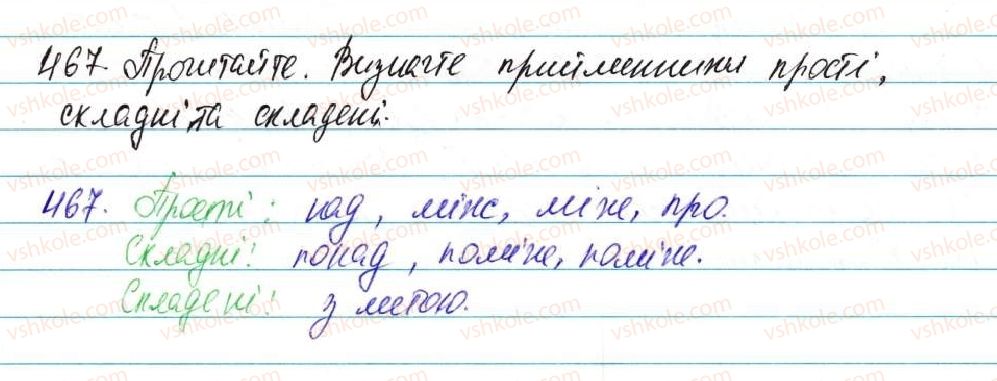 467. Прочитайте. Визначте прийменники прості,
складні та складені.
467. Прості: над, між, між, про.
Складні: понад, поміж, поміж.
Складені: з метою.